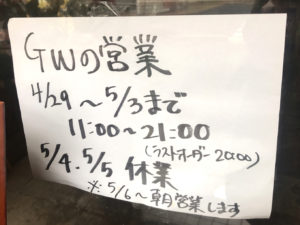 GWの営業
4/29 ~ 5/3まで
11:00~21:00
(ラストオーダー 20:00)
5/4. 5/5 休業
※ 5/6~朝営業します